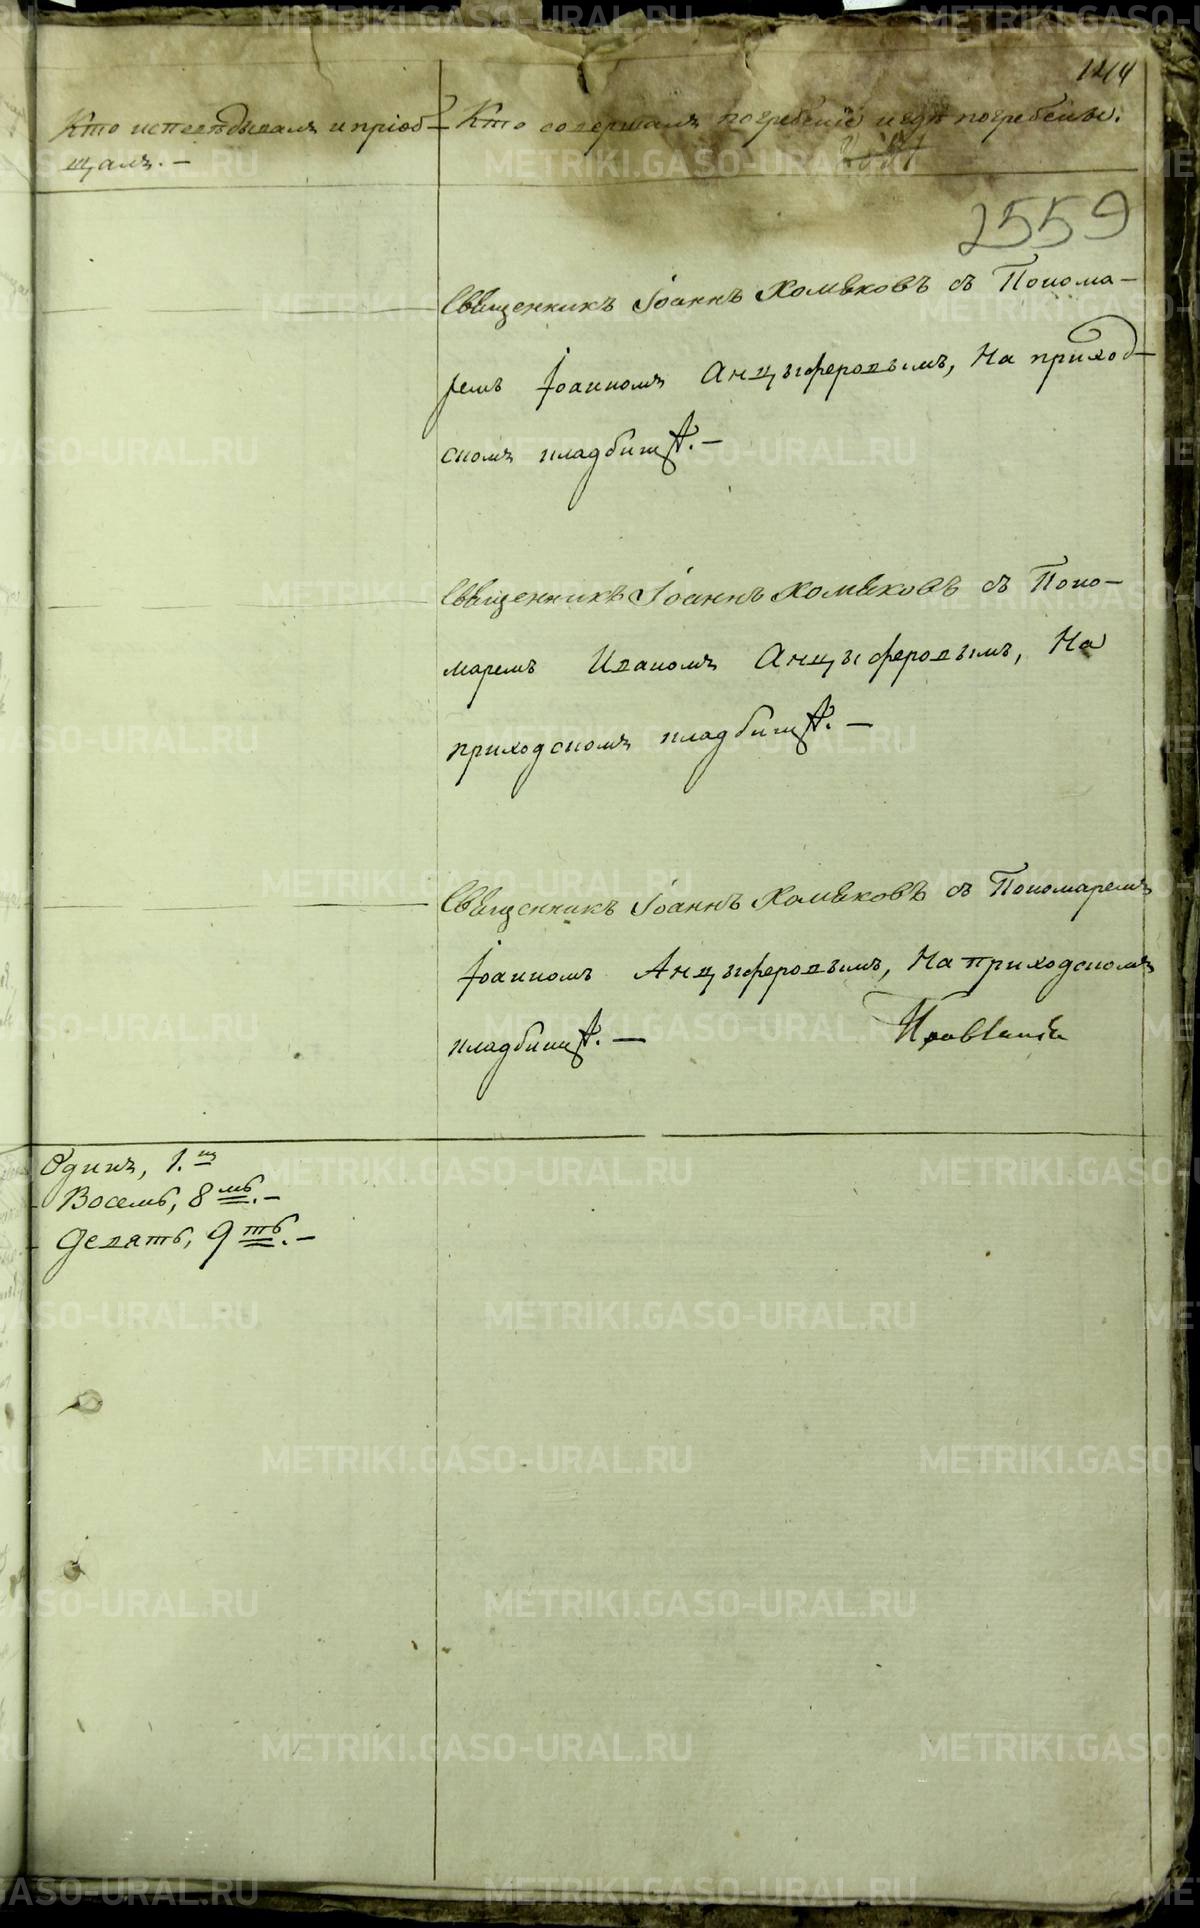 1214
Кто исповѣдывалъ и пріоб-
щалъ. —
Кто совершалъ погребеніе и гдѣ погребены.
2559
Священникъ Іоаннъ Хомяковъ съ Понома-
ремъ Іоанномъ Анцыферовымъ, На приход-
скомъ кладбищѣ. —
Священникъ Іоаннъ Хомяковъ съ Поно-
маремъ Иваномъ Анцыферовымъ, На
приходскомъ кладбищѣ. —
Священникъ Іоаннъ Хомяковъ съ Пономаремъ
Іоанномъ Анцыферовымъ, На приходскомъ
кладбищѣ. —
Одинъ, 1.нъ
Восемь, 8мь. —
Девять, 9ть. —
METRIKI.GASO-URAL.RU